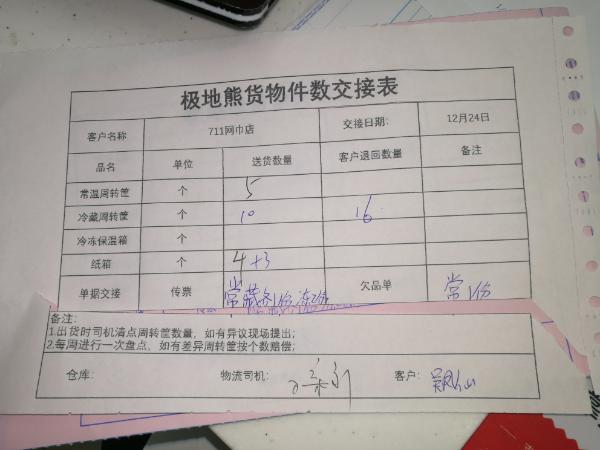 极地熊货物件数交接表
客户名称 711网巾店 交接日期: 12月24日
品名 单位 送货数量 客户退回数量 备注
常温周转筐 个 5
冷藏周转筐 个 10 16
冷冻保温箱 个
纸箱 个 4 +3
单据交接 传票 常藏各1份 冻2份 欠品单 常1份
备注:
1.出货时司机清点周转筐数量,如有异议现场提出;
2.每周进行一次盘点,如有差异周转筐按个数赔偿;
仓库: 物流司机: 客户: